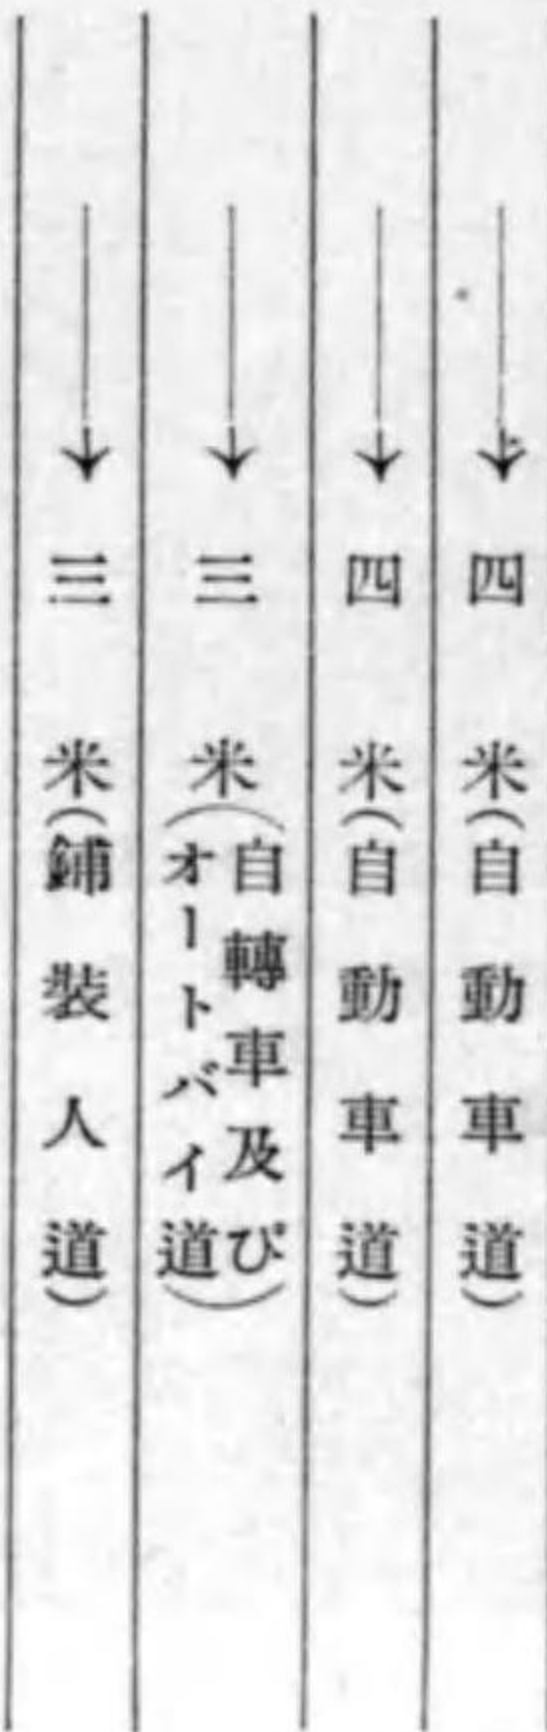 四米(自動車道)
四米(自動車道)
三米(自轉車及び
オートバイ道)
三米(鋪装人道)